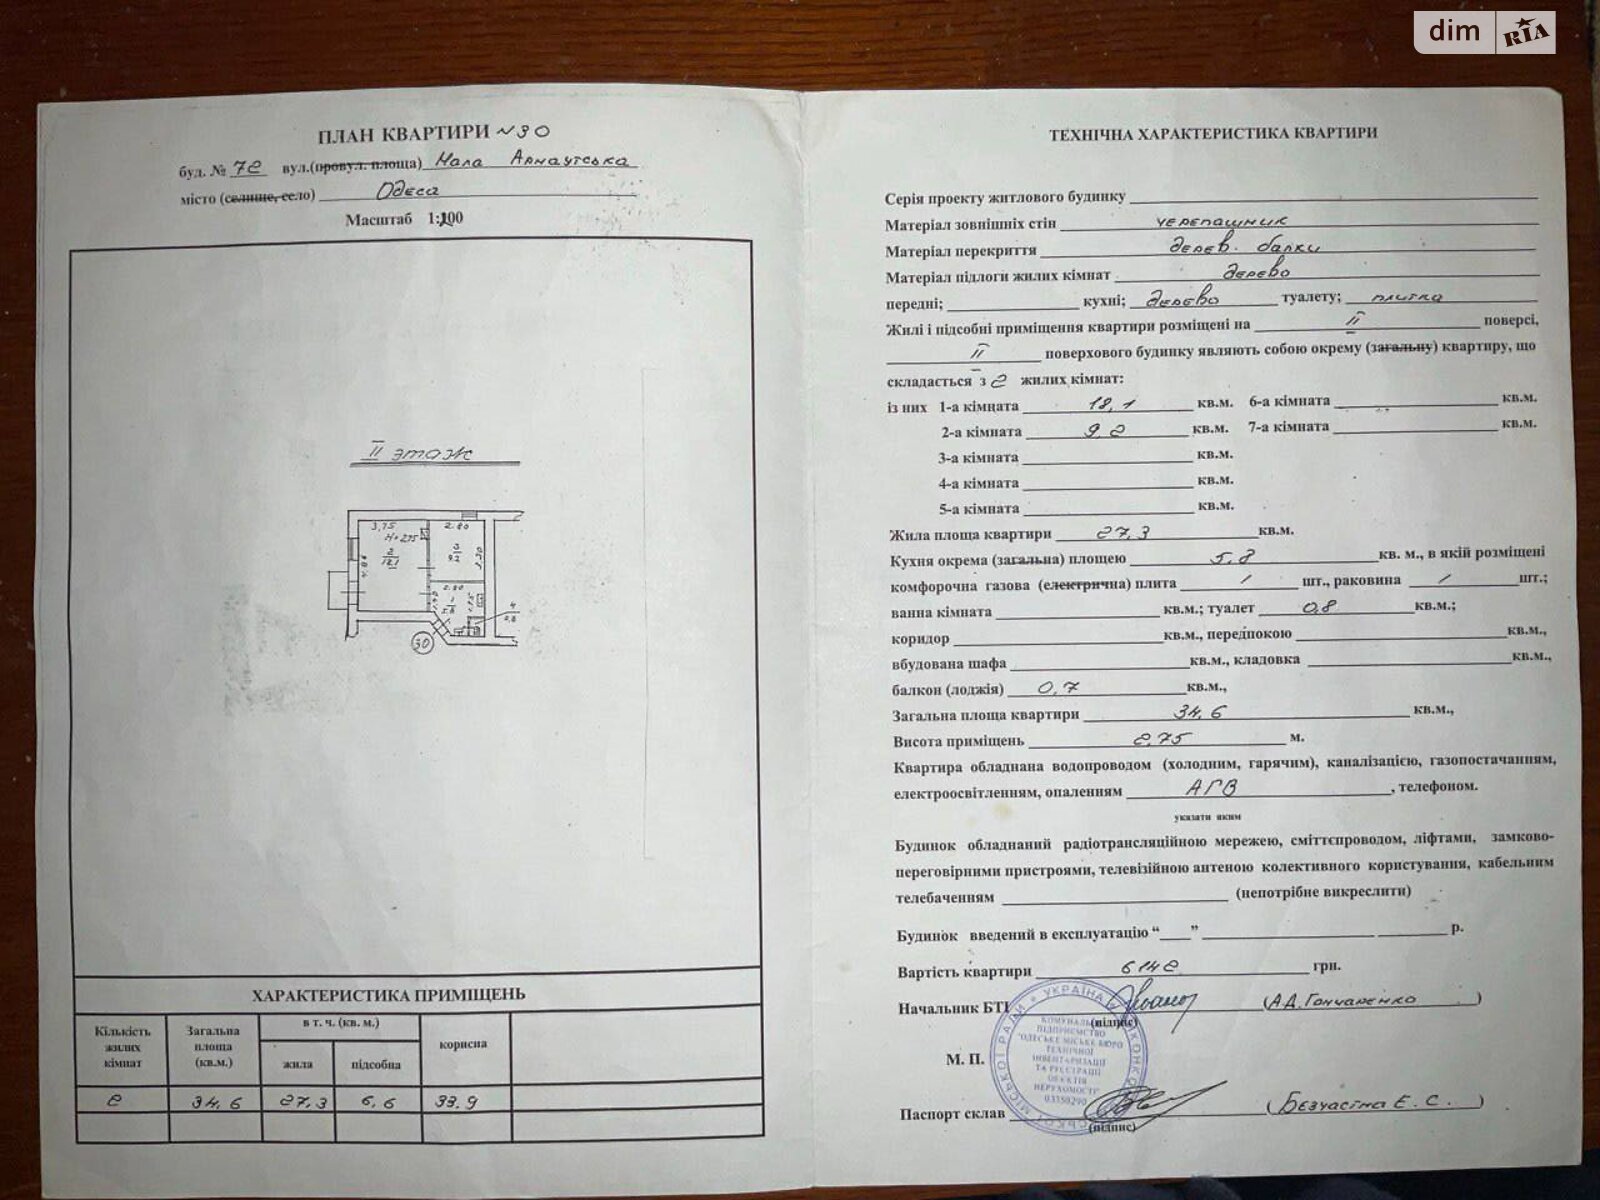 dim RIA
ПЛАН КВАРТИРИ №30
буд. № 72 вул.(провул. площа) Мала Арнаутська
місто (селище, село) Одеса
Масштаб 1:100
II этаж
3,75 2.80
H=2.75
2 18.1
3 9.2
4.86
3,30
2.80
1 5.8
4 0.8
30
ХАРАКТЕРИСТИКА ПРИМІЩЕНЬ
Кількість жилих кімнат
Загальна площа (кв.м.)
в т. ч. (кв. м.)
жила
підсобна
корисна
2 34.6 27,3 6,6 33.9
ТЕХНІЧНА ХАРАКТЕРИСТИКА КВАРТИРИ
Серія проекту житлового будинку
Матеріал зовнішніх стін черепашник
Матеріал перекриття дерев. балки
Матеріал підлоги жилих кімнат дерево
передні; кухні; дерево туалету; плитка
Жилі і підсобні приміщення квартири розміщені на II поверсі,
II поверхового будинку являють собою окрему (загальну) квартиру, що
складається з 2 жилих кімнат:
із них 1-а кімната 18,1 кв.м. 6-а кімната кв.м.
2-а кімната 9,2 кв.м. 7-а кімната кв.м.
3-а кімната кв.м.
4-а кімната кв.м.
5-а кімната кв.м.
Жила площа квартири 27,3 кв.м.
Кухня окрема (загальна) площею 5,8 кв. м., в якій розміщені
комфорочна газова (електрична) плита 1 шт., раковина 1 шт.;
ванна кімната кв.м.; туалет 0,8 кв.м.;
коридор кв.м., передпокою кв.м.,
вбудована шафа кв.м., кладовка кв.м.,
балкон (лоджія) 0,7 кв.м.,
Загальна площа квартири 34,6 кв.м.,
Висота приміщень 2,75 м.
Квартира обладнана водопроводом (холодним, гарячим), каналізацією, газопостачанням,
електроосвітленням, опаленням АГВ, телефоном.
указати яким
Будинок обладнаний радіотрансляційною мережею, сміттєпроводом, ліфтами, замково-
переговірними пристроями, телевізійною антеною колективного користування, кабельним
телебаченням (непотрібне викреслити)
Будинок введений в експлуатацію “ ” р.
Вартість квартири 6142 грн.
Начальник БТІ (А.Д. Гончаренко)
(підпис)
М. П.
УКРАЇНА
КОМУНАЛЬНЕ
ПІДПРИЄМСТВО
"ОДЕСЬКЕ МІСЬКЕ БЮРО
ТЕХНІЧНОЇ
ІНВЕНТАРИЗАЦІЇ
ТА РЕЄСТРАЦІЇ
ОБ'ЄКТІВ
НЕРУХОМОСТІ"
03350290
Паспорт склав (Безчастна Е. С.)
(підпис)